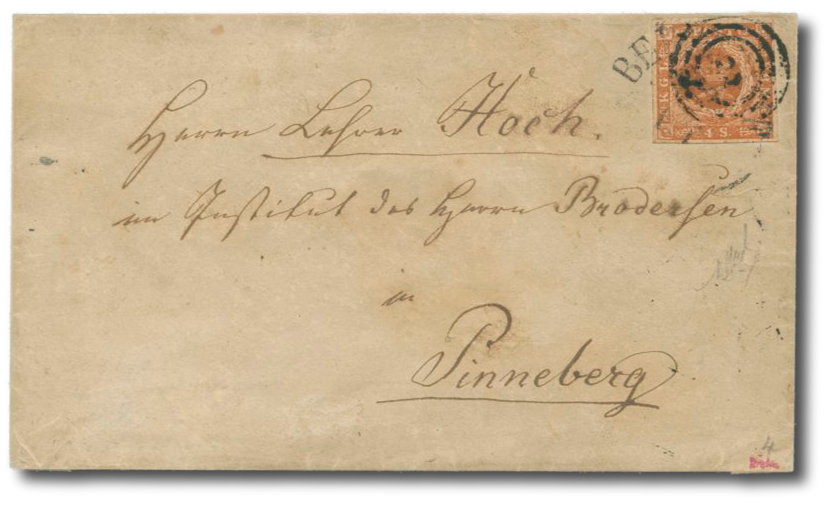 BE
2
4 S.
Herrn Lehrer Hoch.
im Institut des Herrn Brodersen
in
Pinneberg
4